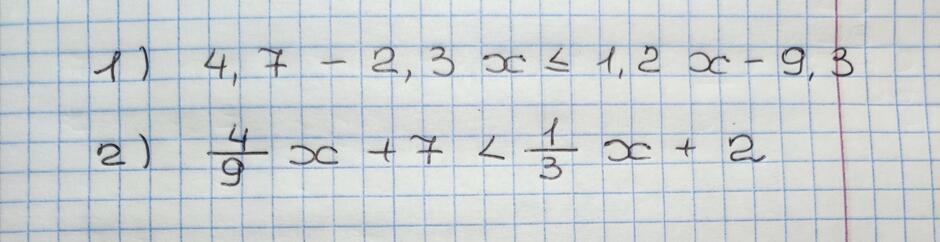 1) 4,7 - 2,3 x ≤ 1,2 x - 9,3
2) 4/9 x + 7 < 1/3 x + 2